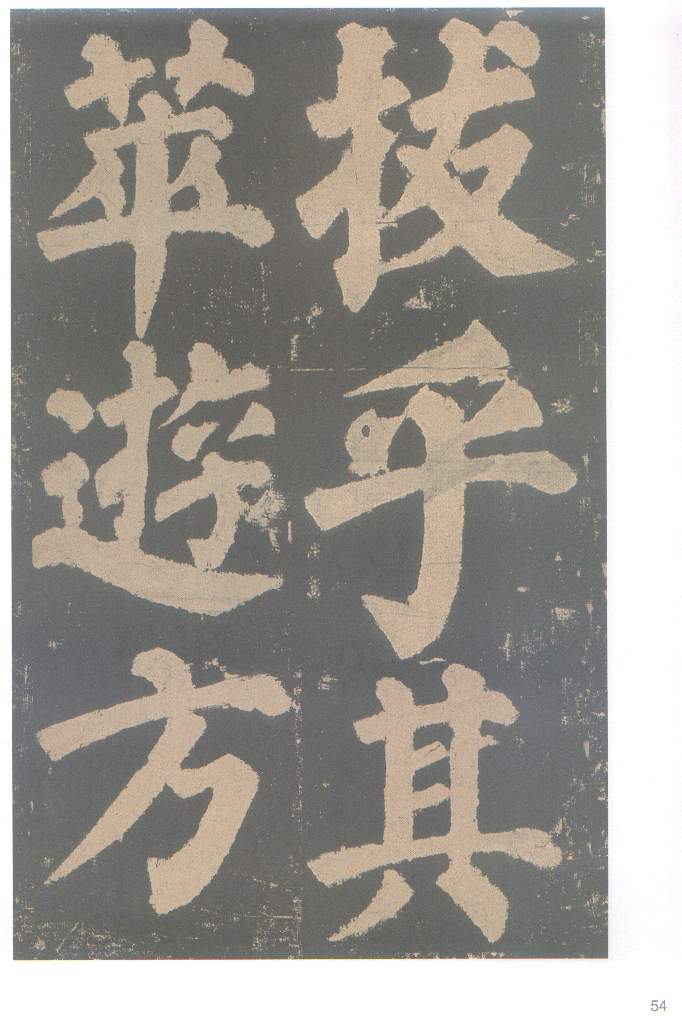 拔乎其
萃遊方
54